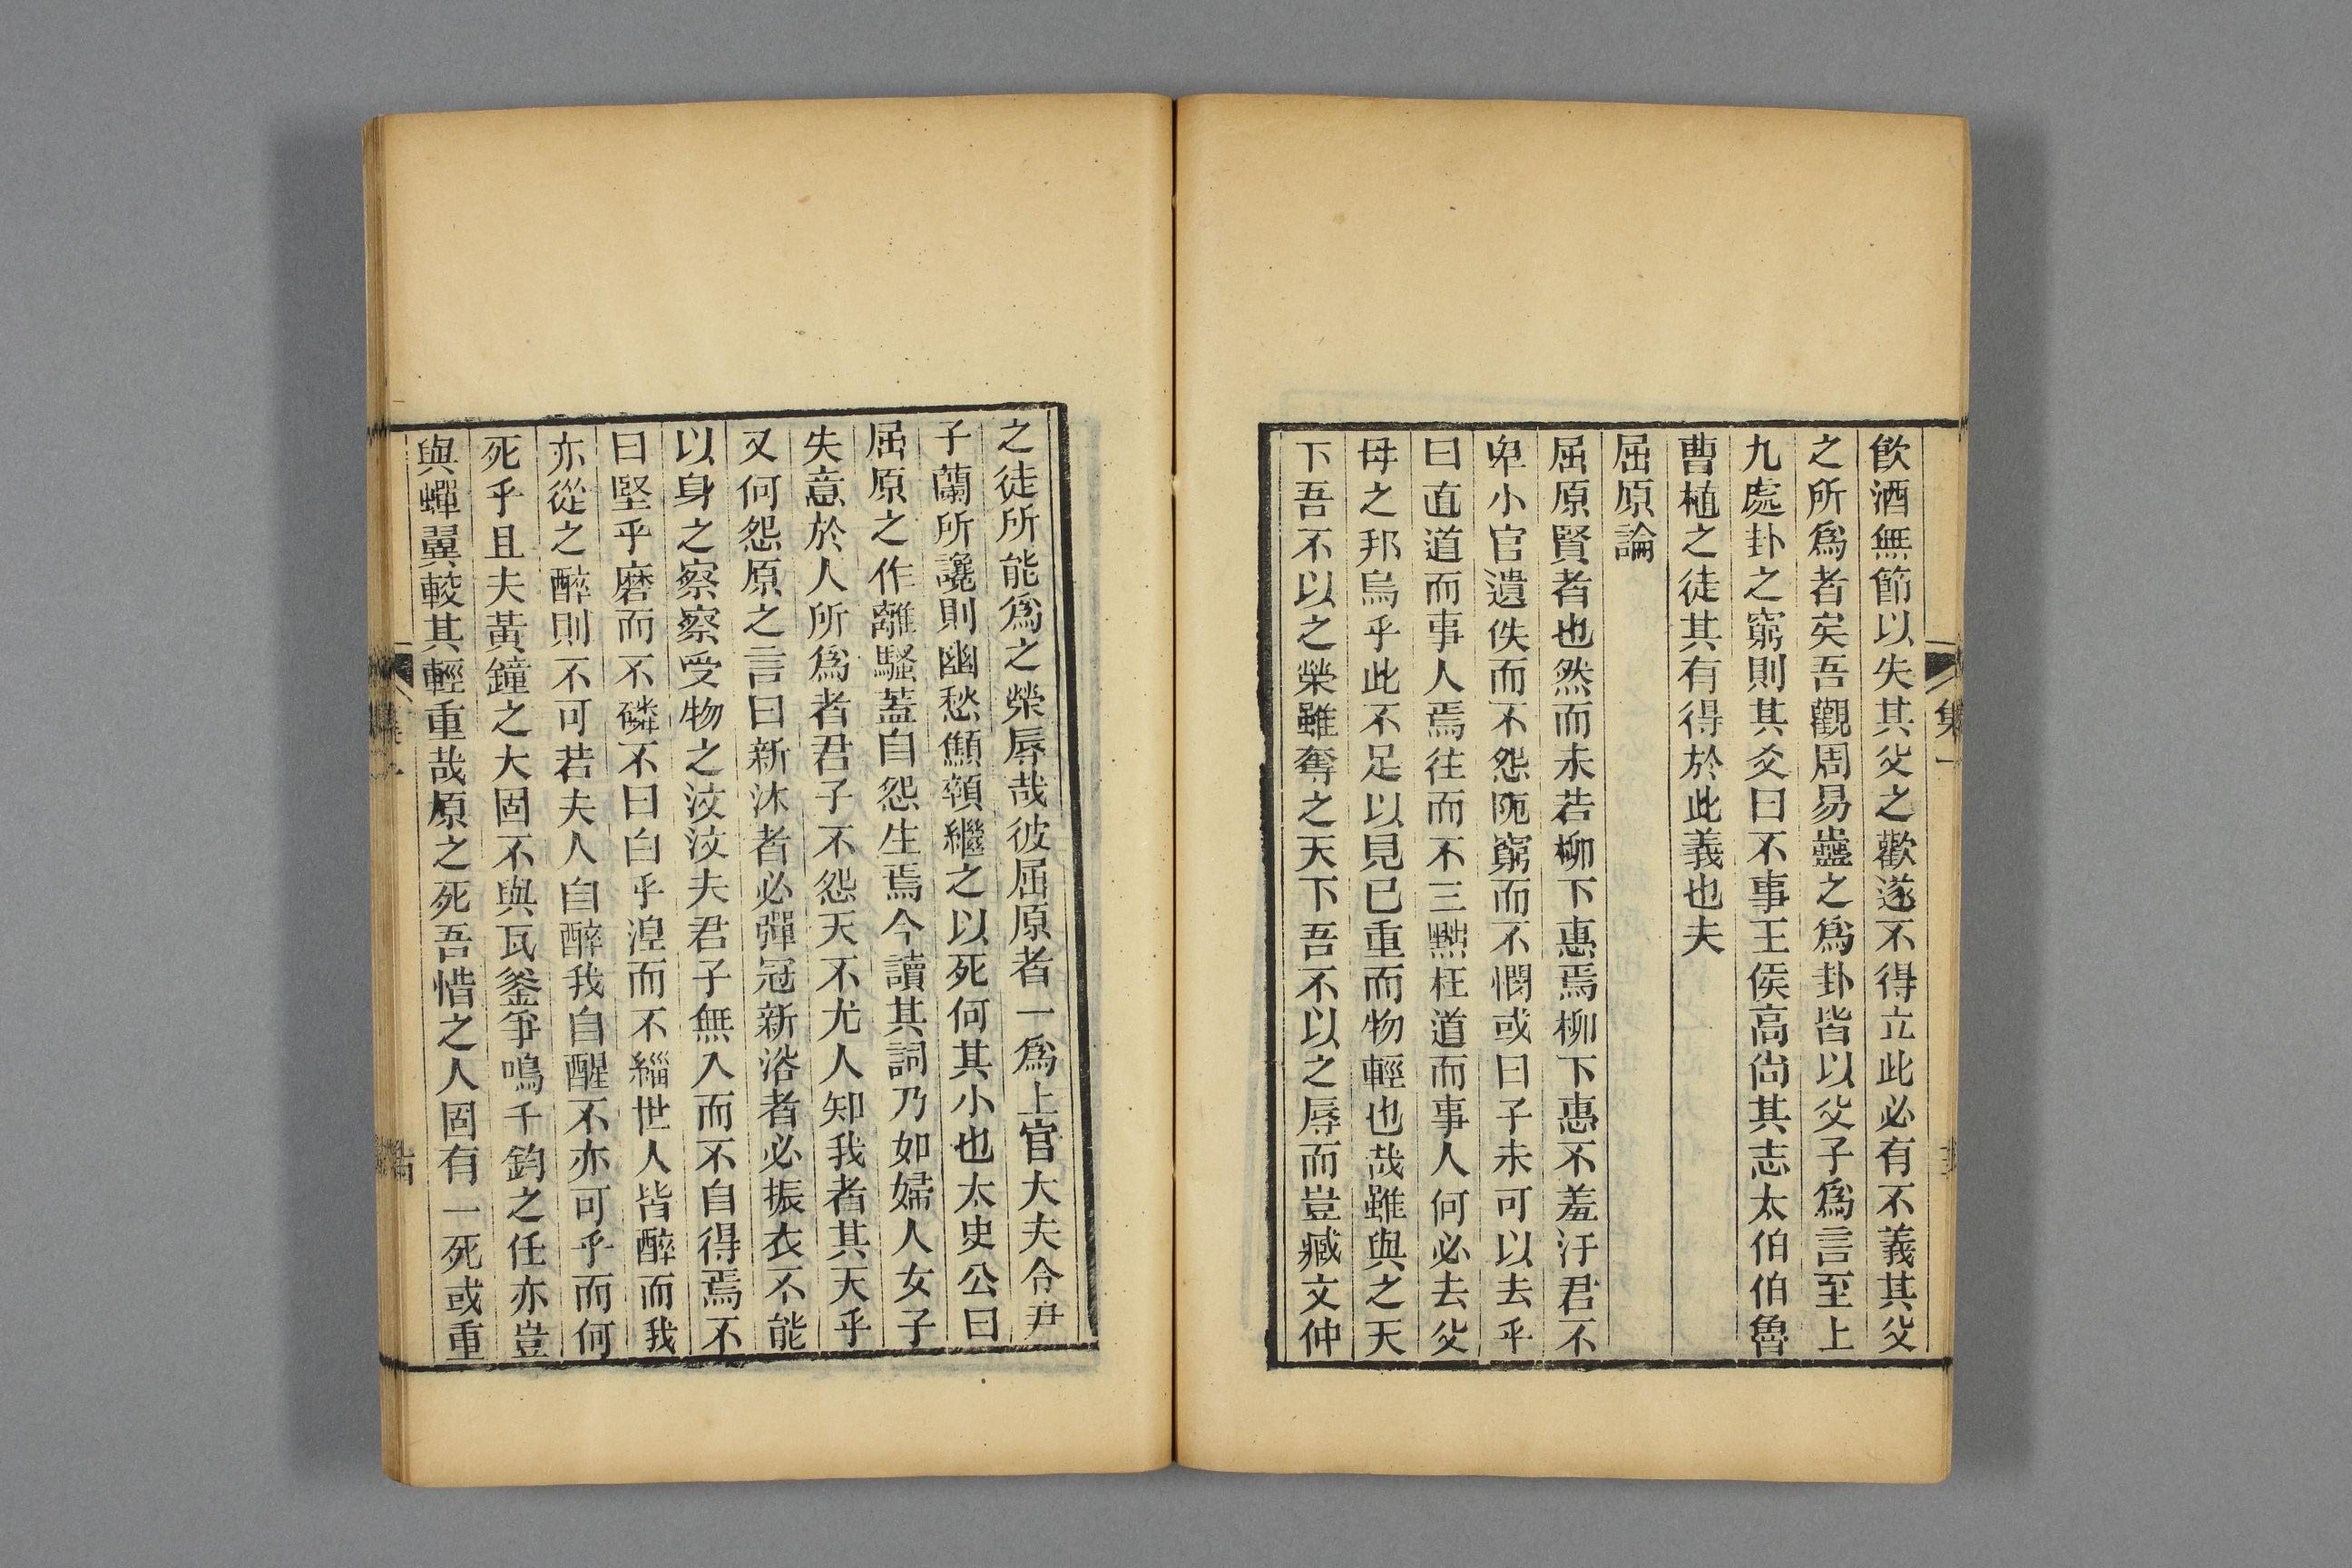 集一
飲酒無節以失其父之歡遂不得立此必有不義其父
之所爲者矣吾觀周易蠱之爲卦皆以父子爲言至上
九處卦之窮則其爻曰不事王侯高尚其志太伯伯魯
曹植之徒其有得於此義也夫
屈原論
屈原賢者也然而未若柳下惠焉柳下惠不羞汙君不
卑小官遺佚而不怨阨窮而不憫或曰子未可以去乎
曰直道而事人焉往而不三黜枉道而事人何必去父
母之邦烏乎此不足以見已重而物輕也哉雖與之天
下吾不以之榮雖奪之天下吾不以之辱而豈臧文仲
之徒所能爲之榮辱哉彼屈原者一爲上官大夫令尹
子蘭所讒則幽愁顦顇繼之以死何其小也太史公曰
屈原之作離騷蓋自怨生焉今讀其詞乃如婦人女子
失意於人所爲者君子不怨天不尤人知我者其天乎
又何怨原之言曰新沐者必彈冠新浴者必振衣不能
以身之察察受物之汶汶夫君子無入而不自得焉不
曰堅乎磨而不磷不曰白乎湼而不緇世人皆醉而我
亦從之醉則不可若夫人自醉我自醒不亦可乎而何
死乎且夫黃鐘之大固不與瓦釜爭鳴千鈞之任亦豈
與蟬翼較其輕重哉原之死吾惜之人固有一死或重